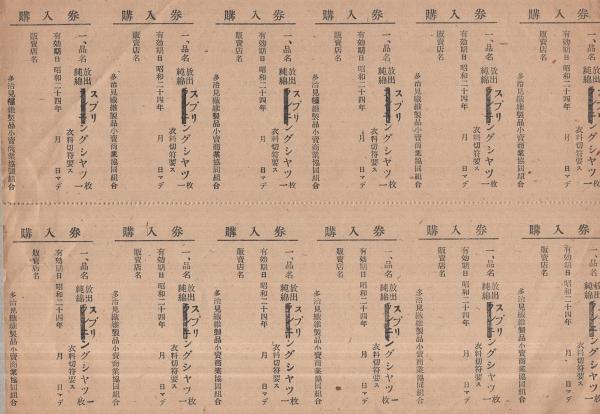 購入券
一、品名 放出純綿 スプリングシャツ 一枚
衣料切符要ス
有効期日 昭和二十四年 月 日マデ
販賣店名
多治見繊維製品小賣商業協同組合
購入券
一、品名 放出純綿 スプリングシャツ 一枚
衣料切符要ス
有効期日 昭和二十四年 月 日マデ
販賣店名
多治見繊維製品小賣商業協同組合
購入券
一、品名 放出純綿 スプリングシャツ 一枚
衣料切符要ス
有効期日 昭和二十四年 月 日マデ
販賣店名
多治見繊維製品小賣商業協同組合
購入券
一、品名 放出純綿 スプリングシャツ 一枚
衣料切符要ス
有効期日 昭和二十四年 月 日マデ
販賣店名
多治見繊維製品小賣商業協同組合
購入券
一、品名 放出純綿 スプリングシャツ 一枚
衣料切符要ス
有効期日 昭和二十四年 月 日マデ
販賣店名
多治見繊維製品小賣商業協同組合
購入券
一、品名 放出純綿 スプリングシャツ 一枚
衣料切符要ス
有効期日 昭和二十四年 月 日マデ
販賣店名
多治見繊維製品小賣商業協同組合
購入券
一、品名 放出純綿 スプリングシャツ 一
衣料切符要ス
有効期日 昭和二十四年 月 日マデ
販賣店名
多治見繊維製品小賣商業協同組合
購入券
一、品名 放出純綿 スプリングシャツ 一
衣料切符要ス
有効期日 昭和二十四年 月 日マデ
販賣店名
多治見繊維製品小賣商業協同組合
購入券
一、品名 放出純綿 スプリングシャツ 一
衣料切符要ス
有効期日 昭和二十四年 月 日マデ
販賣店名
多治見繊維製品小賣商業協同組合
購入券
一、品名 放出純綿 スプリングシャツ 一
衣料切符要ス
有効期日 昭和二十四年 月 日マデ
販賣店名
多治見繊維製品小賣商業協同組合
購入券
一、品名 放出純綿 スプリングシャツ 一
衣料切符要ス
有効期日 昭和二十四年 月 日マデ
販賣店名
多治見繊維製品小賣商業協同組合
購入券
一、品名 放出純綿 スプリングシャツ 一
衣料切符要ス
有効期日 昭和二十四年 月 日マデ
販賣店名
多治見繊維製品小賣商業協同組合